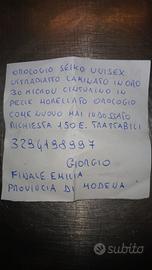 OROLOGIO SEIKO UNISEX
ULTRAPIATTO LAMINATO IN ORO
30 MICRON CINTURINO IN
PELLE MORELLATO OROLOGIO
COME NUOVO MAI INDOSSATO
RICHIESTA 150 E. TRATTABILI
3294198997
GIORGIO
FINALE EMILIA
PROVINCIA DI MODENA
subito